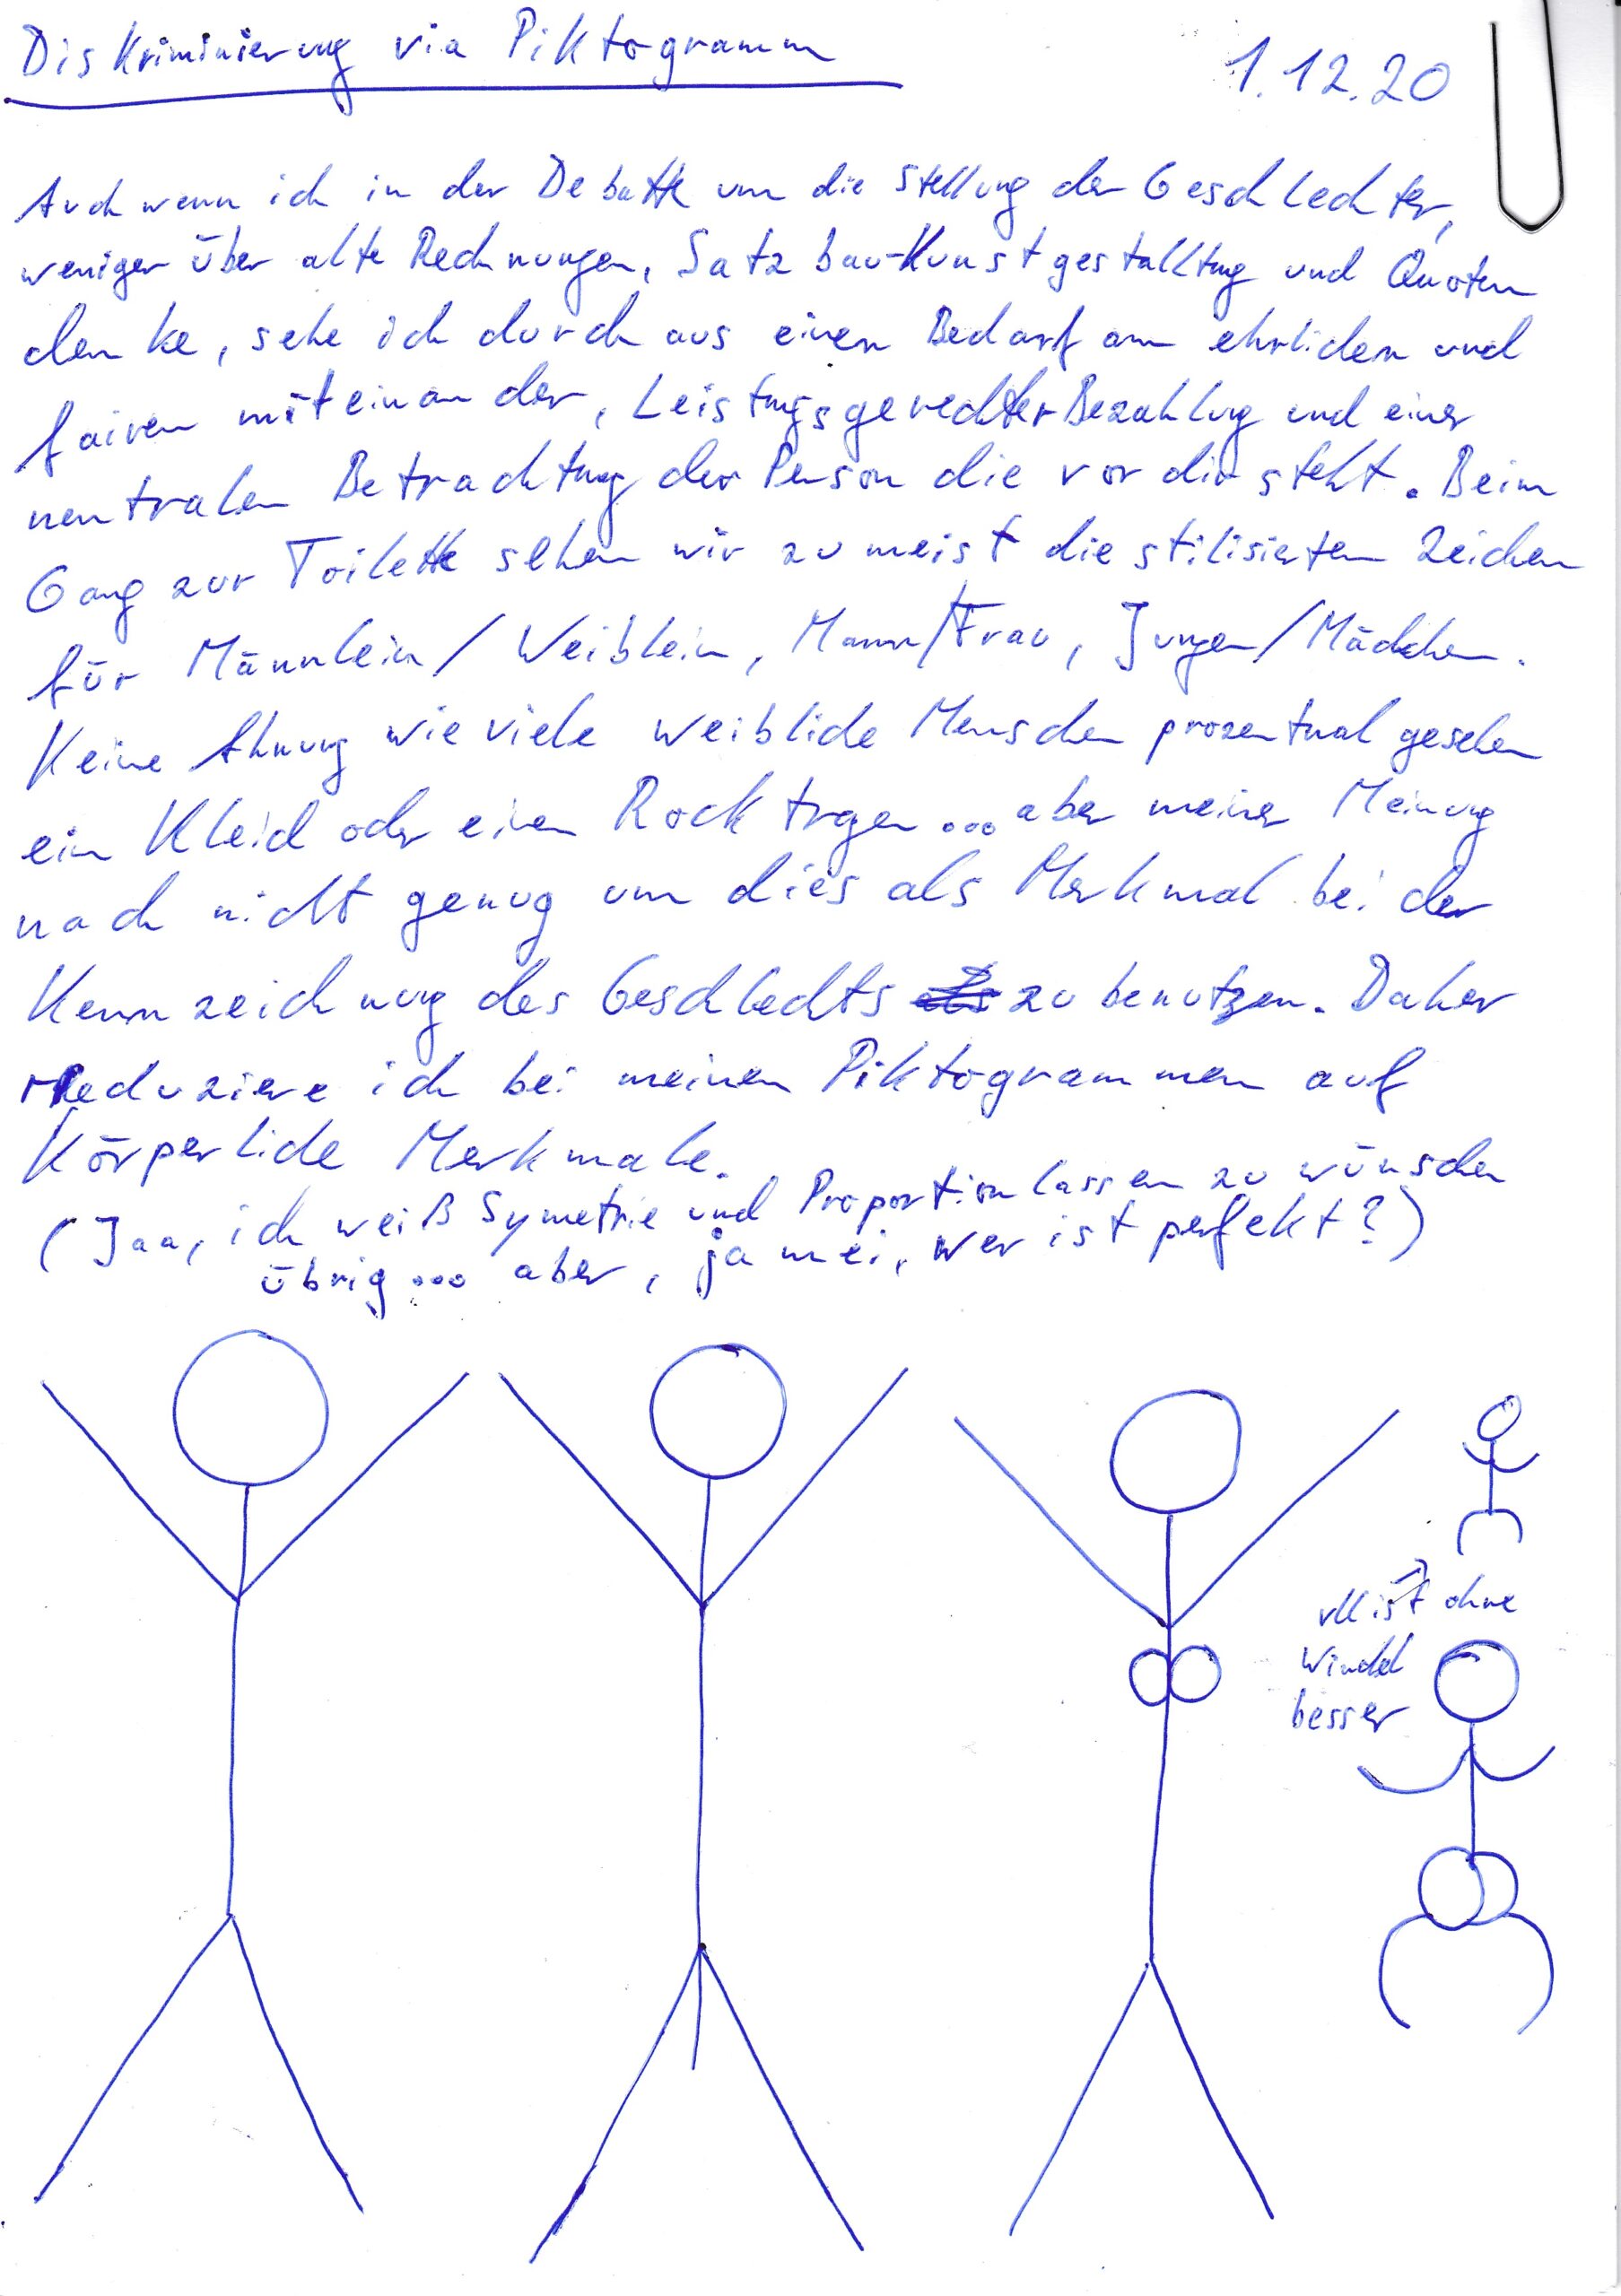 Diskriminierung via Piktogramm
1.12.20
Auch wenn ich in der Debatte um die Stellung der Geschlechter,
weniger über alte Rechnungen, Satzbau-Kunstgestalltung und Quoten
denke, sehe ich durchaus einen Bedarf am ehrlichen und
fairen miteinander, Leistungsgerechter Bezahlung und einer
neutralen Betrachtung der Person die vor dir steht. Beim
Gang zur Toilette sehen wir zumeist die stilisierten Zeichen
für Männlein/Weiblein, Mann/Frau, Jungen/Mädchen.
Keine Ahnung wieviele weibliche Menschen prozentual gesehen
ein Kleid oder einen Rock trgen... aber meiner Meinung
nach nicht genug um dies als Merkmal bei der
Kennzeichnung des Geschlechts zu benutzen. Daher
reduziere ich bei meinen Piktogrammen auf
Körperliche Merkmale.
(Jaa, ich weiß Symetrie und Proportion lassen zu wünschen
übrig... aber, ja mei, wer ist perfekt?)
ist ohne
Windel
besser